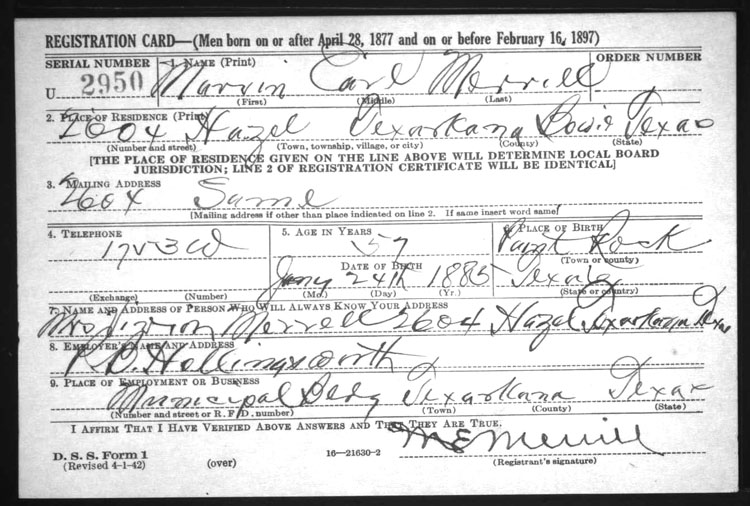 REGISTRATION CARD—(Men born on or after April 28, 1877 and on or before February 16, 1897)
SERIAL NUMBER 1. NAME (Print) ORDER NUMBER
U 2950 Marvin Carl Merrill
(First) (Middle) (Last)
2. PLACE OF RESIDENCE (Print)
2604 Hazel Texarkana Bowie Texas
(Number and street) (Town, township, village, or city) (County) (State)
[THE PLACE OF RESIDENCE GIVEN ON THE LINE ABOVE WILL DETERMINE LOCAL BOARD
JURISDICTION; LINE 2 OF REGISTRATION CERTIFICATE WILL BE IDENTICAL]
3. MAILING ADDRESS
2604 Same
[Mailing address if other than place indicated on line 2. If same insert word same]
4. TELEPHONE 5. AGE IN YEARS 6. PLACE OF BIRTH
57 Paint Rock
(Town or county)
DATE OF BIRTH
Jany 24th 1885 Texas
(Exchange) (Number) (Mo.) (Day) (Yr.) (State or country)
7. NAME AND ADDRESS OF PERSON WHO WILL ALWAYS KNOW YOUR ADDRESS
Mrs Merrell 2604 Hazel Texarkana Texas
8. EMPLOYER'S NAME AND ADDRESS
Hollingsworth
9. PLACE OF EMPLOYMENT OR BUSINESS
Municipal Bldg Texarkana Texas
(Number and street or R. F. D. number) (Town) (County) (State)
I AFFIRM THAT I HAVE VERIFIED ABOVE ANSWERS AND THAT THEY ARE TRUE.
Merrill
D. S. S. Form 1
(Revised 4-1-42) (over) 16—21630-2 (Registrant's signature)